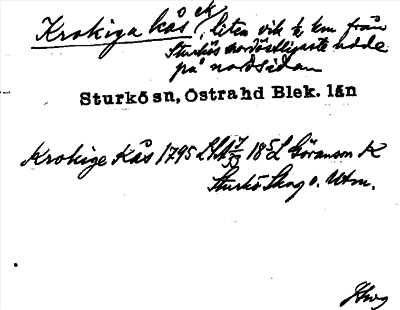 Krokiga kås ek, liten vik ½ km från
Sturkös nordöstligaste udde
på nordsidan
Sturkö sn, Östra hd Blek. län
Krokige Kås 1795 18 Göranson K
Sturkö Skog o. Utm.